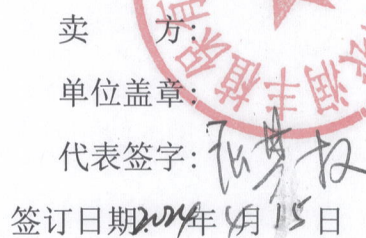 卖 方:
单位盖章:
代表签字:
签订日期2024年4月15日
润丰植保